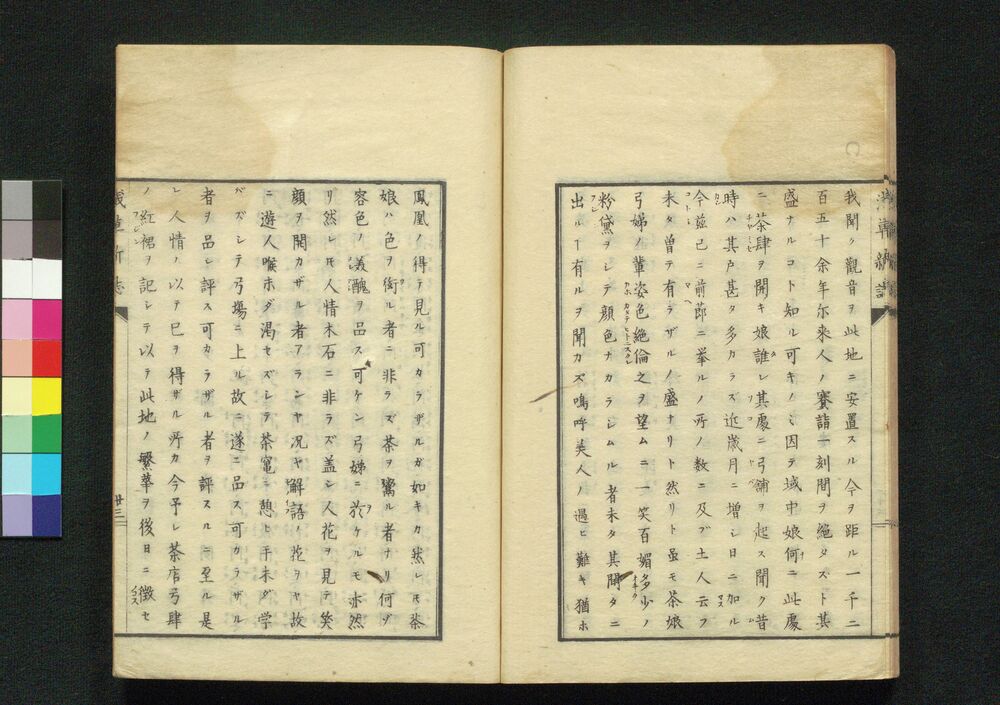 我聞ク觀音ヲ此地ニ安置スル今ヲ距ル一千二
百五十余年尓来人ノ賽詣一刻間ヲ絶タスト其
盛ナルコト知ル可キノミ因テ域中娘何ニ此處
ニ茶肆ヲ開キ娘誰レ其處ニ弓舗ヲ起ス聞ク昔
時ハ其戸甚タ多カラズ近歳月ニ増シ日ニ加ル
今茲已ニ前莭ニ挙ルノ所ノ数ニ及ブ土人云フ
未タ曽テ有ラザルノ盛ナリト然リト虽モ茶娘
弓姊ノ輩姿色絶倫之ヲ望ムニ一笑百媚多少ノ
粉黛ヲシテ顔色ナカラシムル者未タ其開タニ
出ルー有ルヲ聞カズ嗚呼美人ノ過ヒ難キ猶ホ
鳳凰ノ得テ見ル可カラザルガ如キカ然レモ茶
娘ハ色ヲ衒ル者ニ非ラズ茶ヲ鬻ル者ナリ何ゾ
容色ノ美醜ヲ品ス可ケン弓娣ニ於ケルモ亦然
リ然レモ人情木石ニ非ラズ盖シ人花ヲ見テ笑
顔ヲ開カザル者アランヤ况ヤ解語ノ花ヲヤ故
ニ遊人喉ホダ渇セズシテ茶竃ニ憩ヒ手未ダ学
バズシテ弓塲ニ上ル故ニ遂ニ品ス可カラザル
者ヲ品シ評ス可カラザル者ヲ評スルニ至ル是
レ人情ノ以テ已ヲ得ザル所カ今予レ茶店弓肆
ノ紅裙ヲ記シテ以テ此地ノ繁華ヲ後日ニ徴セ
廿三